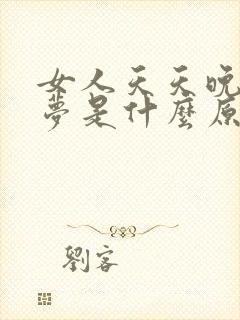 女人天天晚
夢是什麼原
劉客